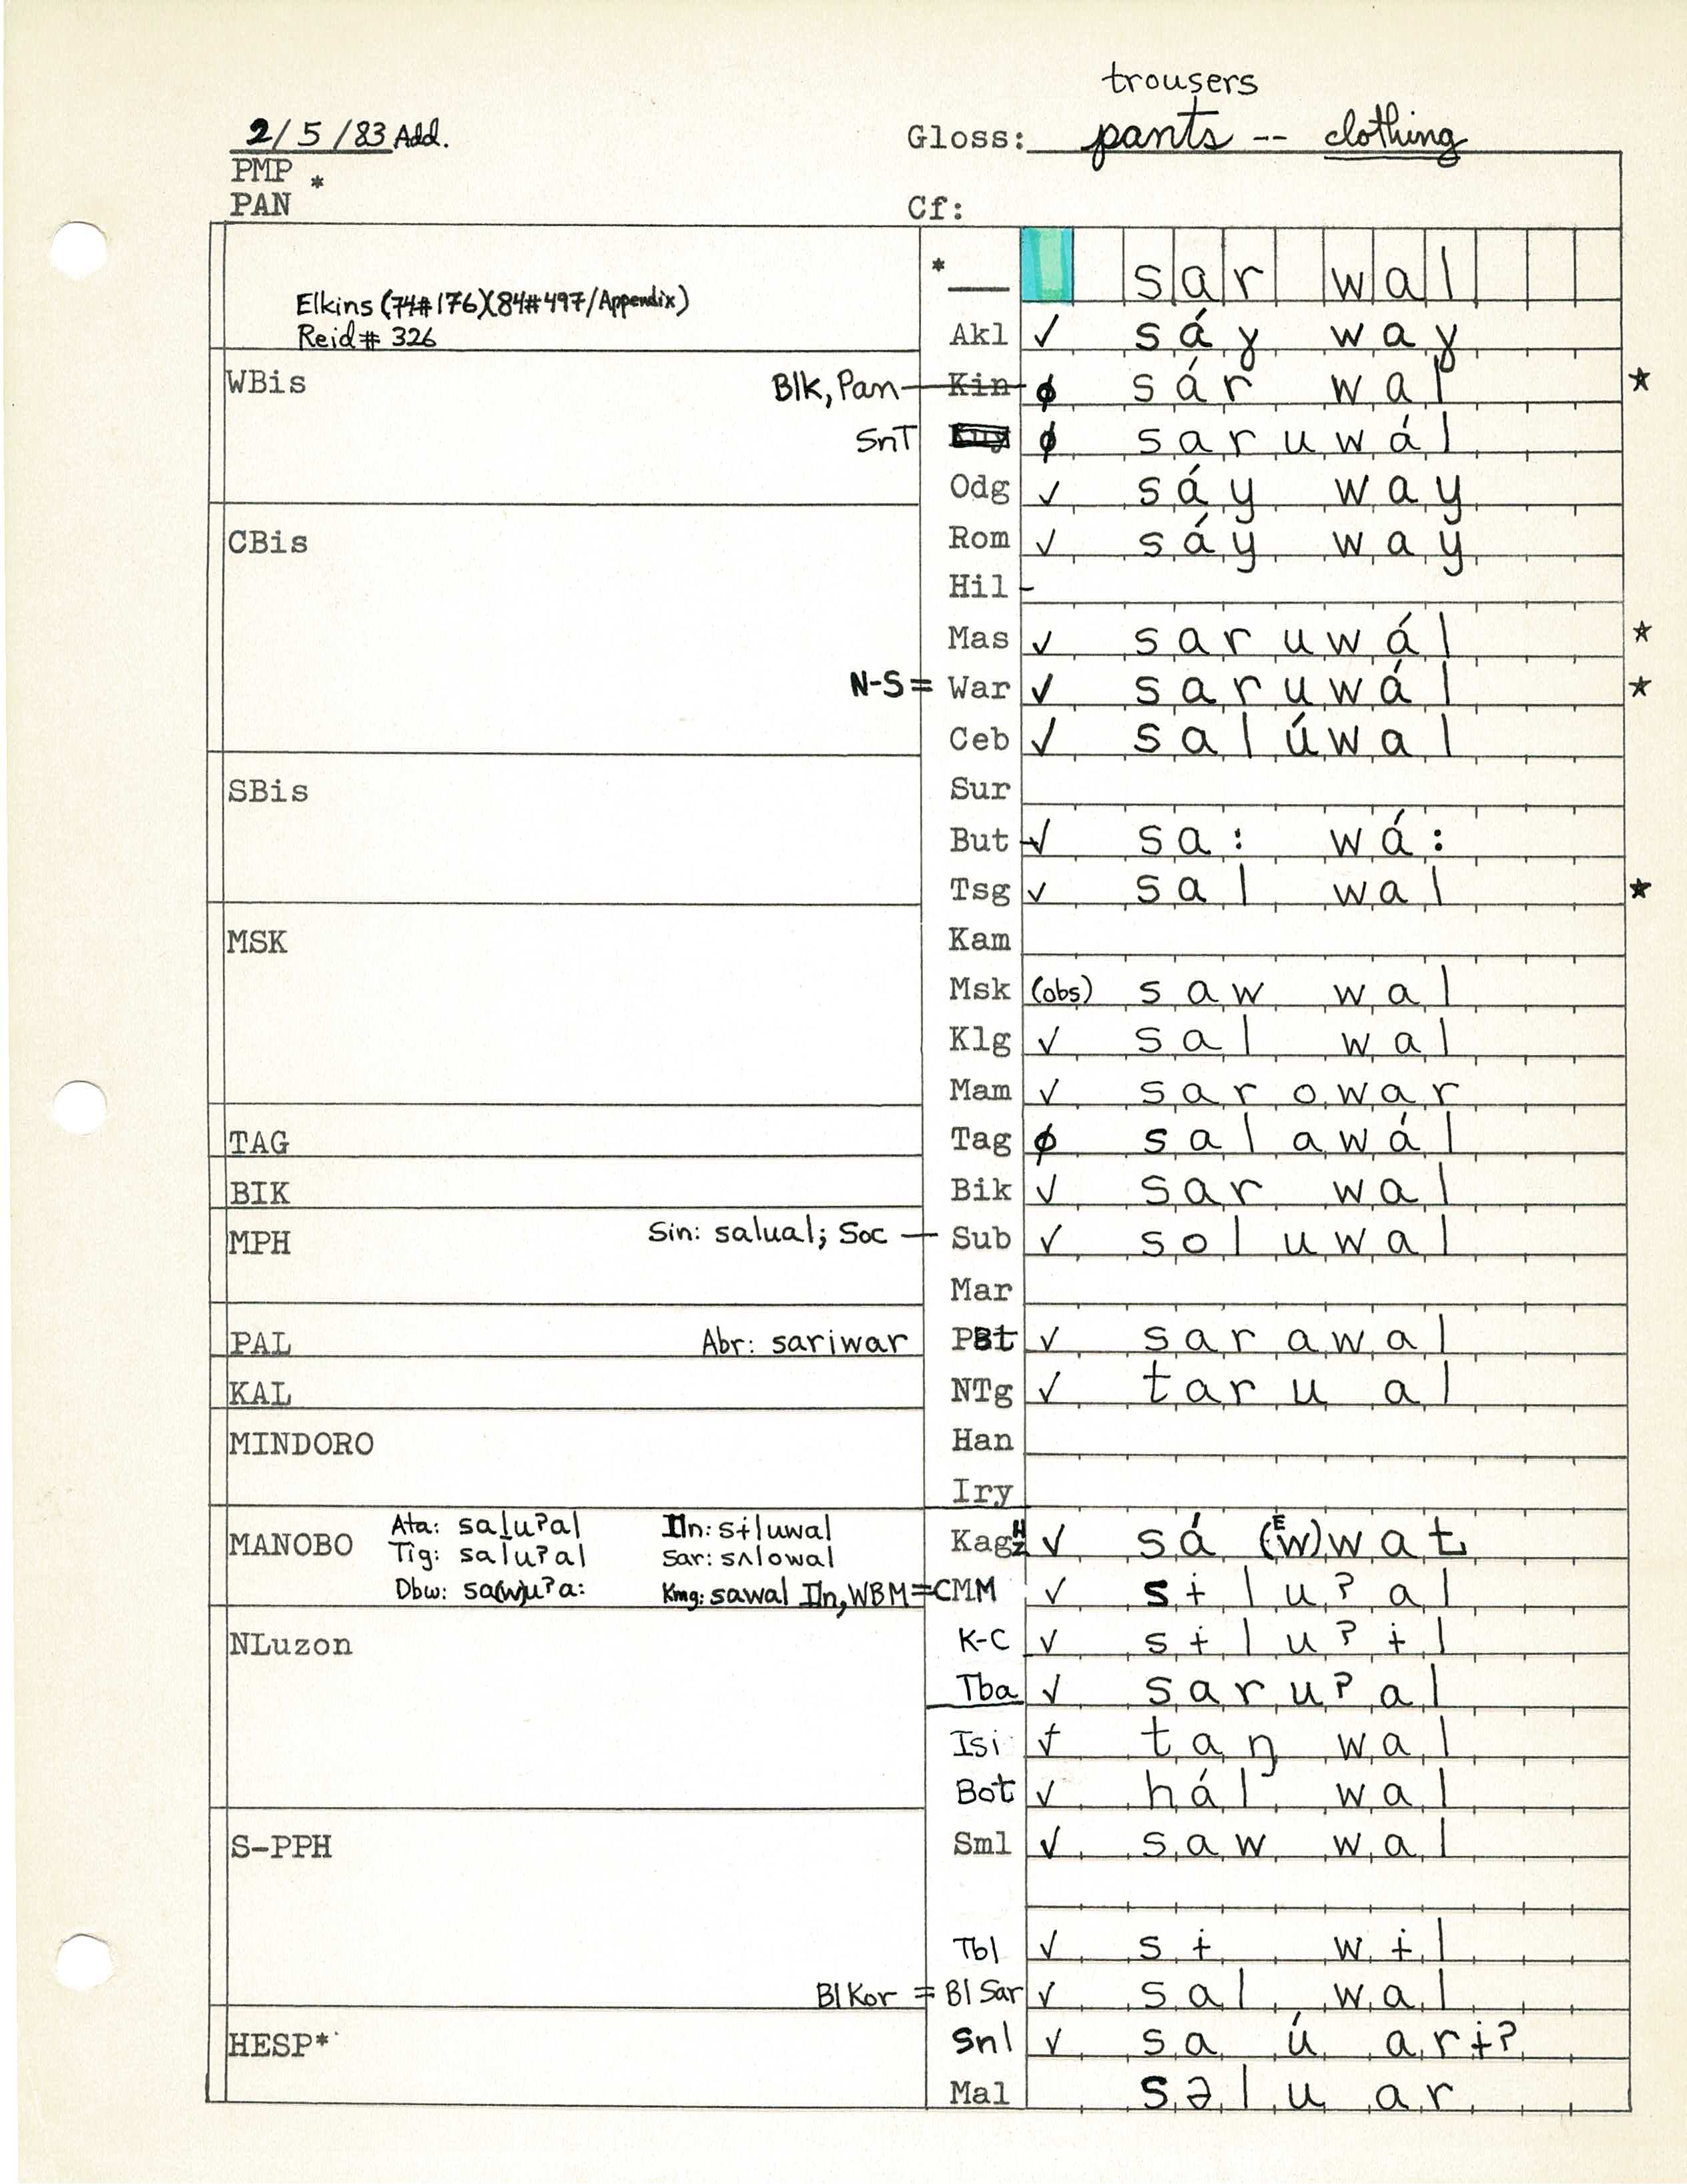 trousers
2/5/83 Add. Gloss: pants -- clothing
PMP *
PAN Cf:
* sar wal
Elkins (74#176)(84#497/Appendix)
Reid# 326
Akl ✓ sáɣ waɣ
WBis Blk, Pan — Kin ϕ sár wal ★
SnT ϕ saruwál
Odg ✓ sáy way
CBis Rom ✓ sáy way
Hil -
Mas ✓ saruwál ★
N-S = War ✓ saruwál ★
Ceb ✓ salúwal
SBis Sur
But ✓ sa: wá:
Tsg ✓ sal wal ★
MSK Kam
Msk (obs) saw wal
Klg ✓ sal wal
Mam ✓ sarowar
TAG Tag ϕ salawál
BIK Bik ✓ sar wal
MPH Sin: salual; Soc — Sub ✓ soluwal
Mar
PAL Abr: sariwar PBt ✓ sarawal
KAL NTg ✓ taru al
MINDORO Han
Iry
MANOBO Ata: salu?al Iln: sɨluwal Kag ✓ sá (w)wat
Tig: salu?al Sar: sʌlowal
Dbw: sa(w)u?a: Kmg: sawal Iln, WBM = CMM ✓ sɨlu?al
NLuzon K-C ✓ sɨlu?ɨl
Tba ✓ saru?al
Isi ✓ taŋ wal
Bot ✓ hál wal
S-PPH Sml ✓ saw wal
Tbl ✓ sɨ wɨl
BlKor = BlSar ✓ sal wal
HESP* Snl ✓ sa ú arɨ?
Mal səlu ar